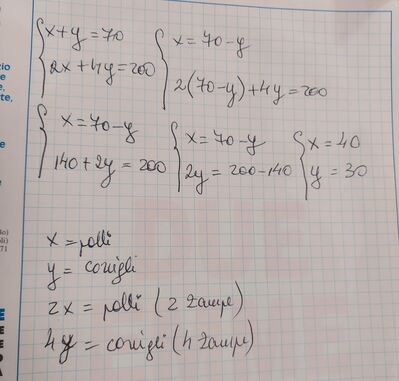 x+y=70
2x+4y=200
x=70-y
2(70-y)+4y=200
x=70-y
140+2y=200
x=70-y
2y=200-140
x=40
y=30
x=polli
y=conigli
2x=polli (2 zampe)
4y=conigli (4 zampe)